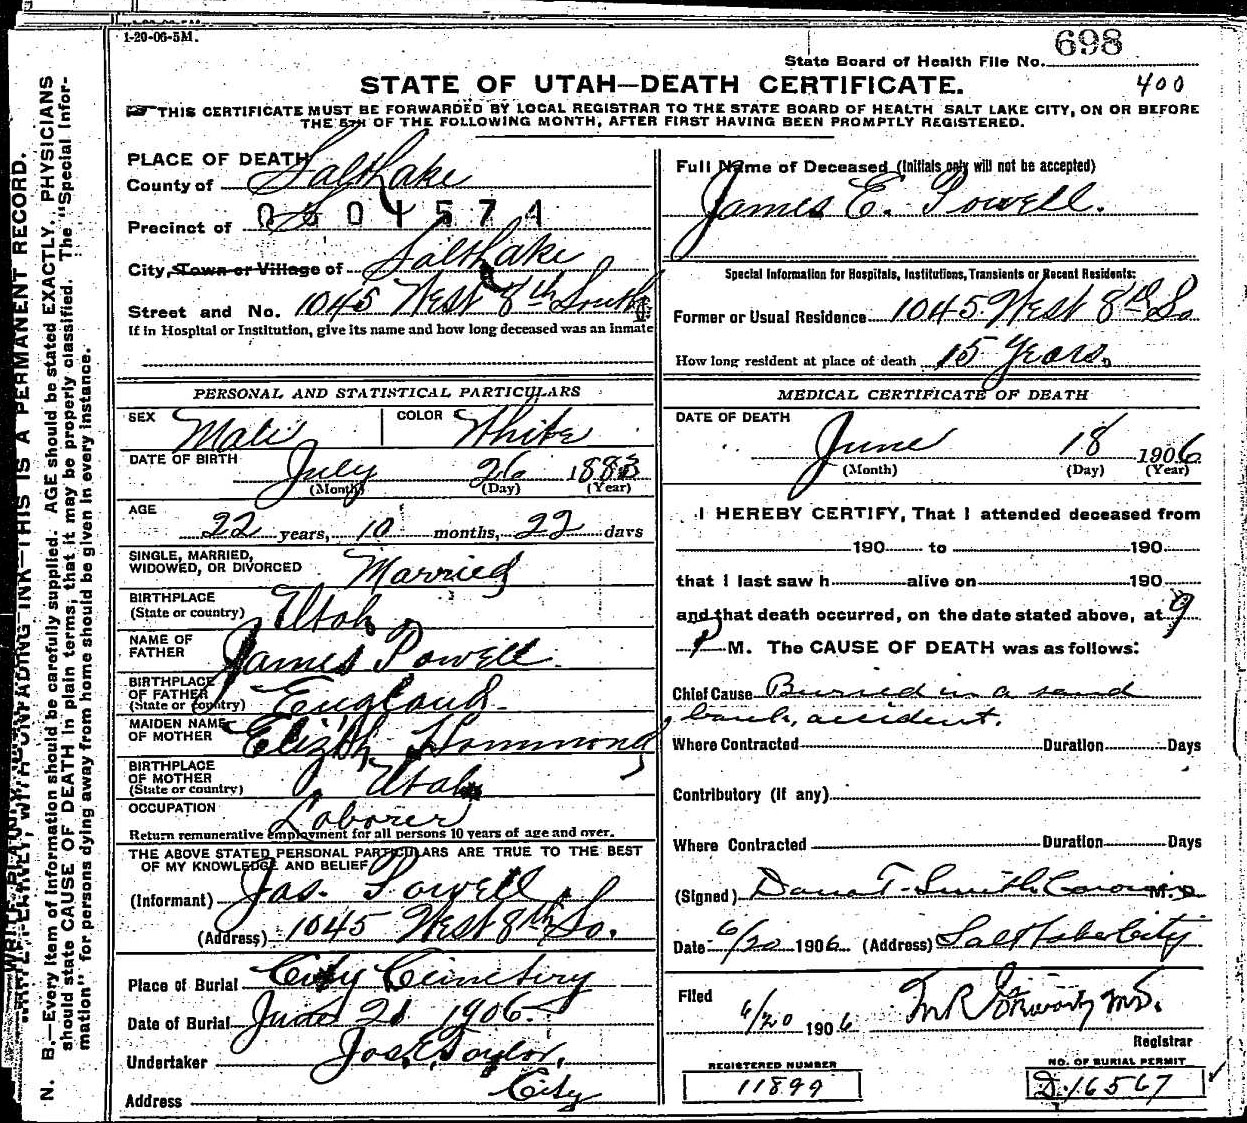 1-29-06-5M.
State Board of Health File No. 698
STATE OF UTAH—DEATH CERTIFICATE. 400
THIS CERTIFICATE MUST BE FORWARDED BY LOCAL REGISTRAR TO THE STATE BOARD OF HEALTH SALT LAKE CITY, ON OR BEFORE
THE 5TH OF THE FOLLOWING MONTH, AFTER FIRST HAVING BEEN PROMPTLY REGISTERED.
PLACE OF DEATH
County of Salt Lake
Precinct of 0601574
City, Town or Village of Salt Lake
Street and No. 1045 West 8th South
If in Hospital or Institution, give its name and how long deceased was an inmate
Full Name of Deceased (Initials only will not be accepted)
James E. Powell.
Special Information for Hospitals, Institutions, Transients or Recent Residents:
Former or Usual Residence 1045 West 8th So
How long resident at place of death 15 Years
PERSONAL AND STATISTICAL PARTICULARS
SEX Male COLOR White
DATE OF BIRTH July 26 1883
(Month) (Day) (Year)
AGE
22 years, 10 months, 22 days
SINGLE, MARRIED,
WIDOWED, OR DIVORCED Married
BIRTHPLACE
(State or country) Utah
NAME OF
FATHER James Powell
BIRTHPLACE
OF FATHER
(State or country) England
MAIDEN NAME
OF MOTHER Elizth Hammond
BIRTHPLACE
OF MOTHER
(State or country) Utah
OCCUPATION Laborer
Return remunerative employment for all persons 10 years of age and over.
THE ABOVE STATED PERSONAL PARTICULARS ARE TRUE TO THE BEST
OF MY KNOWLEDGE AND BELIEF
(Informant) Jas. Powell
(Address) 1045 West 8th So.
Place of Burial City Cemetery
Date of Burial June 21 1906
Undertaker Jos. E. Taylor,
Address City
MEDICAL CERTIFICATE OF DEATH
DATE OF DEATH
June 18 1906
(Month) (Day) (Year)
I HEREBY CERTIFY, That I attended deceased from
190 to 190
that I last saw h alive on 190
and that death occurred, on the date stated above, at 9
P M. The CAUSE OF DEATH was as follows:
Chief Cause Buried in a sand
bank, accident.
Where Contracted Duration Days
Contributory (if any)
Where Contracted Duration Days
(Signed) Dana T. Smith Coroner M.D.
Date 6/20 1906 (Address) Salt Lake City
Filed 6/20 1906 M.D.
Registrar
REGISTERED NUMBER
11899
NO. OF BURIAL PERMIT
D.16567
WRITE PLAINLY, WITH UNFADING INK—THIS IS A PERMANENT RECORD.
N. B.—Every item of information should be carefully supplied. AGE should be stated EXACTLY. PHYSICIANS
should state CAUSE OF DEATH in plain terms, that it may be properly classified. The "Special Infor-
mation" for persons dying away from home should be given in every instance.